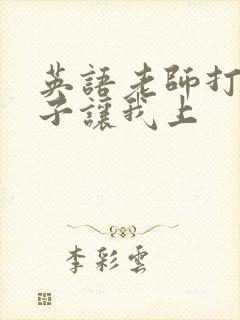 英語老師打
子讓我上
李彩雲